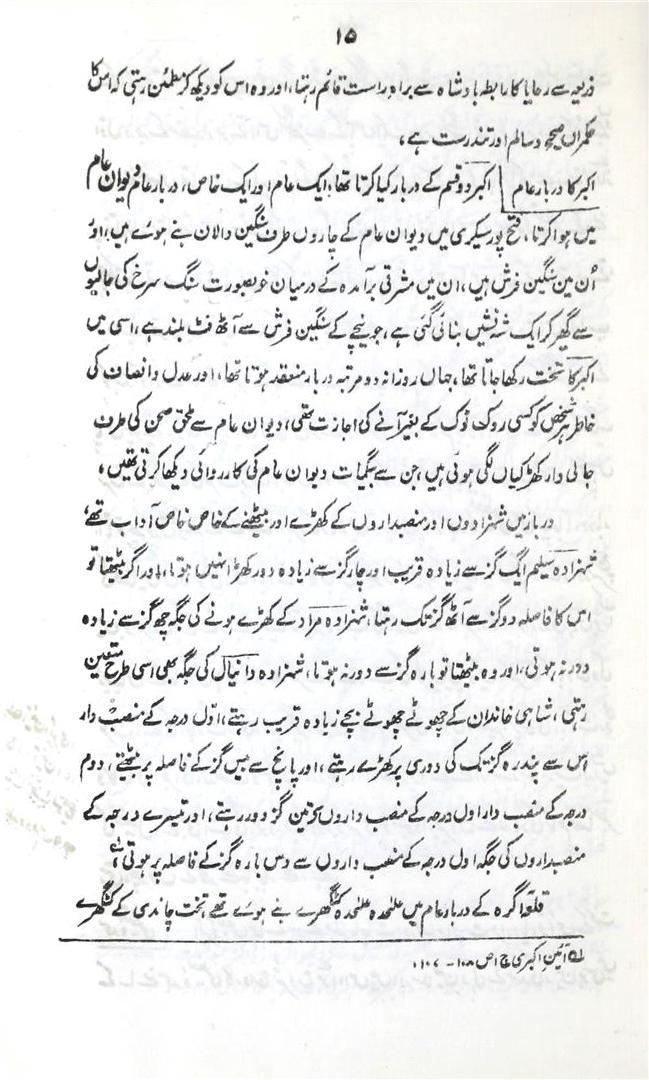 ۱۵
ذریعہ سے رعایا کا رابطہ بادشاہ سے براہ راست قائم رہتا، اور وہ اس کو دیکھ کر مطمئن رہتی کہ اس کا
حکمراں صحیح و سالم اور تندرست ہے،
اکبر کا دربار عام اکبر دو قسم کے دربار کیا کرتا تھا، ایک عام اور ایک خاص، دربار عام دیوان عام
میں ہوا کرتا، فتح پور سیکری میں دیوان عام کے چاروں طرف سنگین دالان بنے ہوئے ہیں، اور
اُن میں سنگین فرش ہیں، ان میں مشرقی برآمدہ کے درمیان خوبصورت سنگ سرخ کی جالیوں
سے گھیر کر ایک شہ نشیں بنائی گئی ہے، جو نیچے کے سنگین فرش سے آٹھ فٹ بلند ہے، اسی میں
اکبر کا تخت رکھا جاتا تھا، جہاں روزانہ دو مرتبہ دربار منعقد ہوتا تھا، اور عدل و انصاف کی
خاطر ہر شخص کو کسی روک ٹوک کے بغیر آنے کی اجازت تھی، دیوان عام سے ملحق صحن کی طرف
جالی دار کھڑکیاں لگی ہوئی ہیں، جن سے بیگمات دیوان عام کی کارروائی دیکھا کرتی تھیں،
دربار میں شہزادوں اور منصبداروں کے کھڑے اور بیٹھنے کے خاص خاص آداب تھے،
شہزادہ سلیم ایک گز سے زیادہ قریب اور چار گز سے زیادہ دور کھڑا نہیں ہوتا، اور اگر بیٹھتا تو
اس کا فاصلہ دو گز سے آٹھ گز تک رہتا، شہزادہ مراد کے کھڑے ہونے کی جگہ چھ گز سے زیادہ
دور نہ ہوتی، اور وہ بیٹھتا تو بارہ گز سے دور نہ ہوتا، شہزادہ دانیال کی جگہ بھی اسی طرح متعین
رہتی، شاہی خاندان کے چھوٹے چھوٹے بچے زیادہ قریب رہتے، اوّل درجہ کے منصب دار
اس سے پندرہ گز تک کی دوری پر کھڑے رہتے، اور پانچ سے بیس گز کے فاصلہ پر بیٹھتے، دوم
درجہ کے منصب دار اول درجہ کے منصب داروں تین گز دور رہتے، اور تیسرے درجہ کے
منصبداروں کی جگہ اول درجہ کے منصب داروں سے دس بارہ گز کے فاصلہ پر ہوتی،
قلعۂ آگرہ کے دربار عام میں علٰحدہ علٰحدہ کٹگھرے بنے ہوئے تھے، تخت چاندی کے کٹگھرے
آئین اکبری ج ۱ ص ۱۰۸ - ۱۰۷،